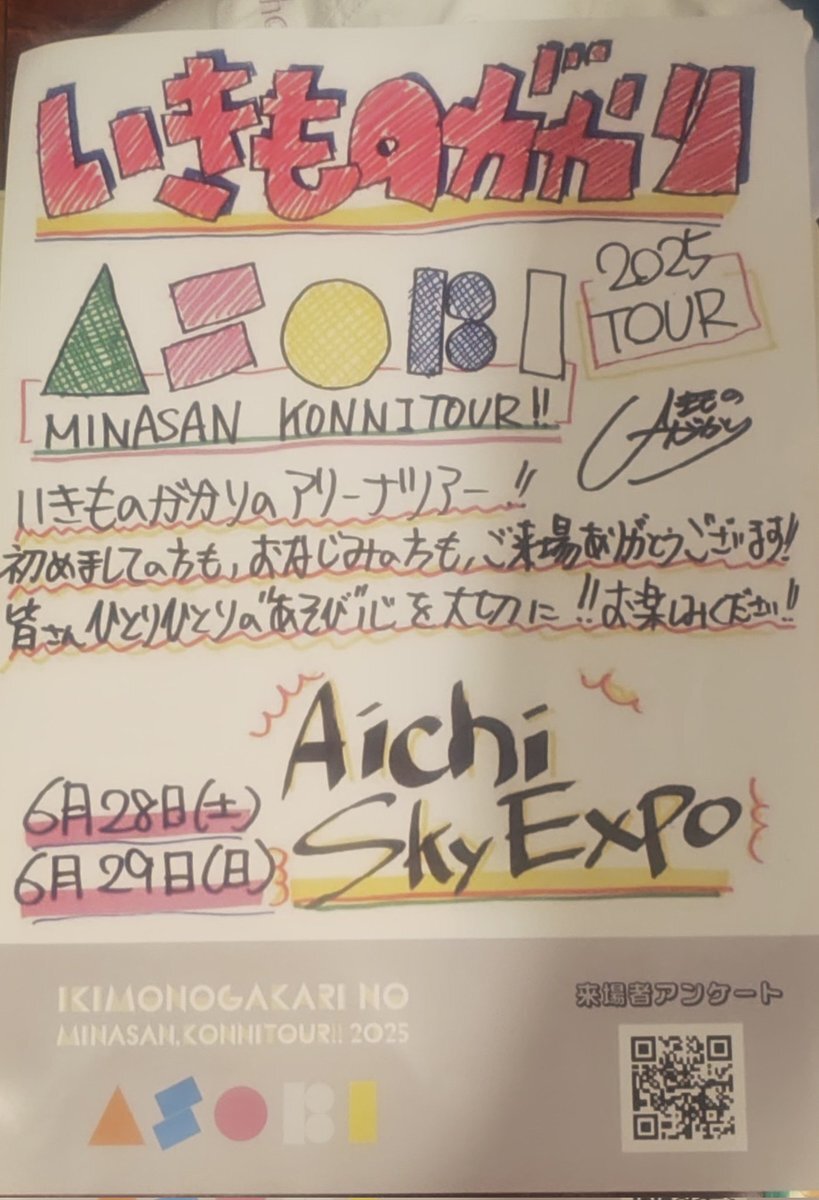 いきものがかり
ASOBI
2025
TOUR
MINASAN KONNITOUR!!
いきものがかり
いきものがかりのアリーナツアー!!
初めましての方も,おなじみの方も,ご来場ありがとうございます!!
皆さんひとりひとりの"あそび"心を大切に!!お楽しみください!!
Aichi
Sky Expo
6月28日(土)
6月29日(日)
IKIMONOGAKARI NO
MINASAN, KONNITOUR!! 2025
ASOBI
来場者アンケート